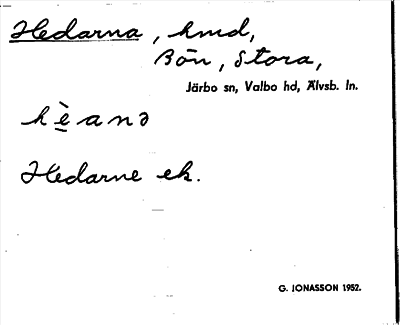 Hedarna, hmd,
Bön, Stora,
Järbo sn, Valbo hd, Älvsb. ln.
hè̱anə
Hedarne ek.
G. JONASSON 1952.